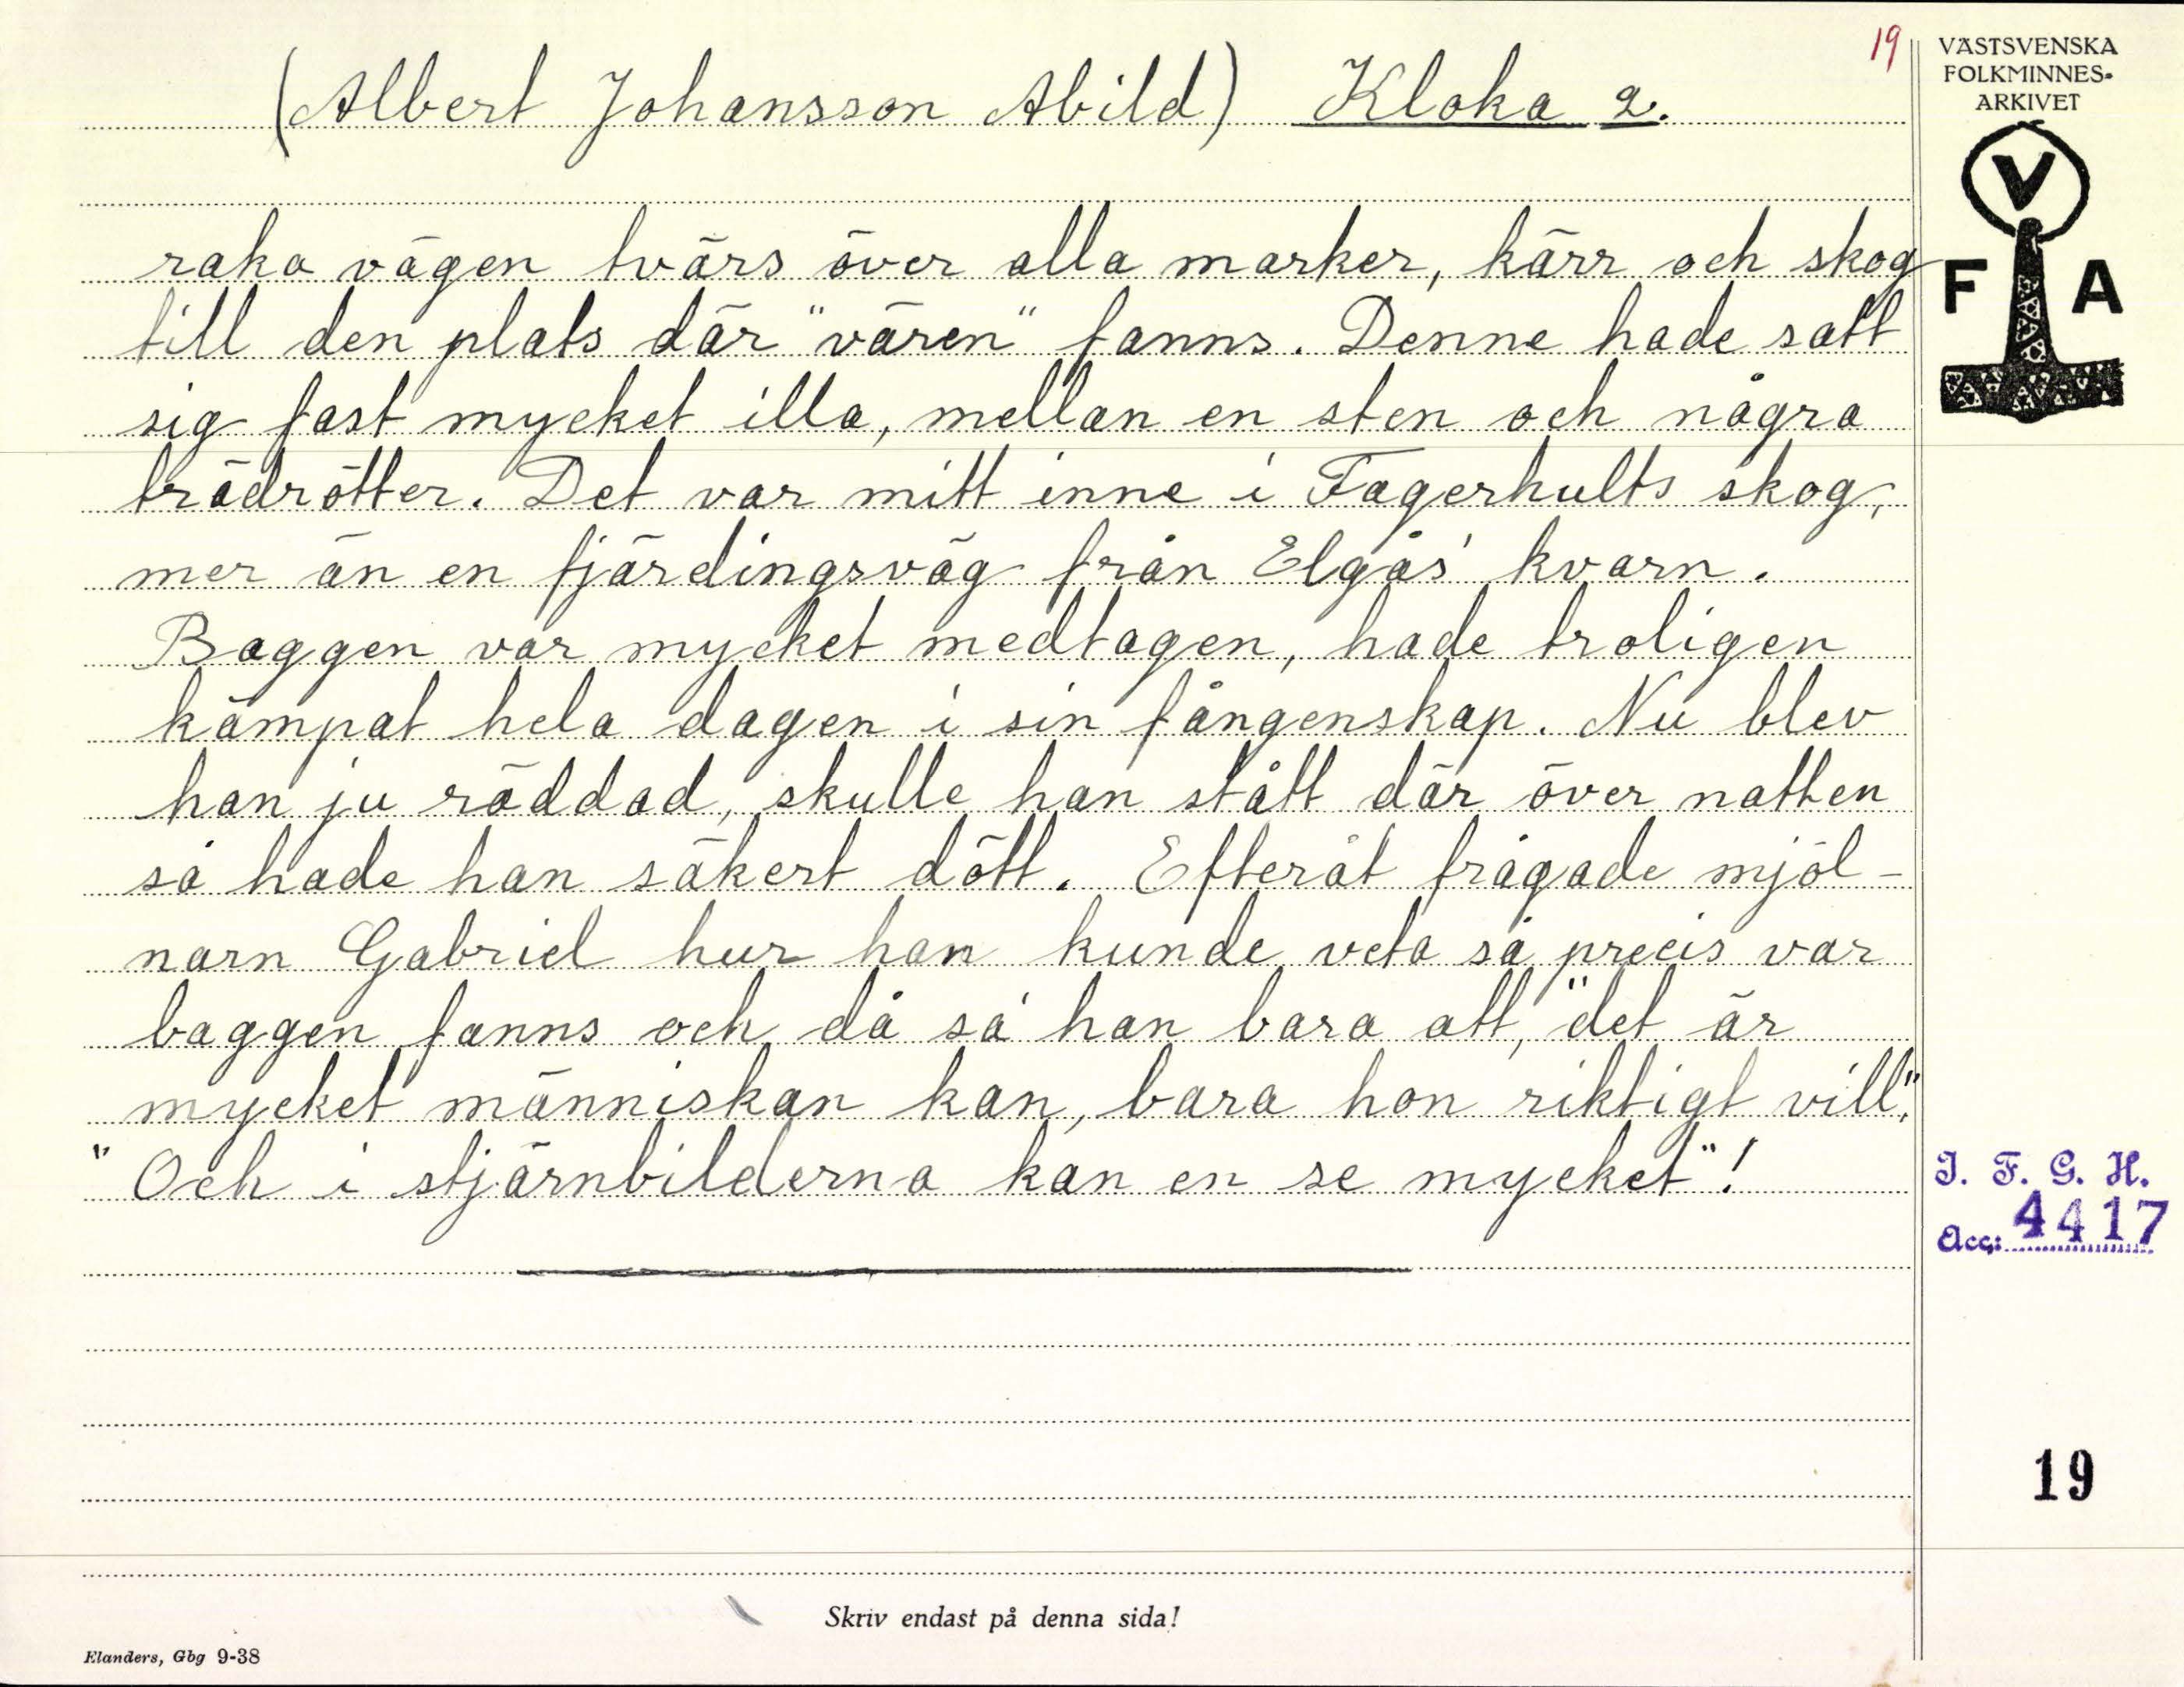 19
(Albert Johansson Abild) Kloka 2.
VÄSTSVENSKA
FOLKMINNES-
ARKIVET
V
F A
raka vägen tvärs över alla marker, kärr och skog
till den plats där "vären" fanns. Denne hade satt
sig fast mycket illa, mellan en sten och några
trädrötter. Det var mitt inne i Fagerhults skog,
mer än en fjärdingsväg från Elgås' kvarn.
Baggen var mycket medtagen, hade troligen
kämpat hela dagen i sin fångenskap. Nu blev
han ju räddad, skulle han stått där över natten
så hade han säkert dött. Efteråt frågade mjöl-
narn Gabriel hur han kunde veta så precis var
baggen fanns och då sa' han bara att, "det är
mycket människan kan, bara hon riktigt vill."
"Och i stjärnbilderna kan en se mycket"!
I. F. G. H.
Acc: 4417
19
Skriv endast på denna sida!
Elanders, Gbg 9-38